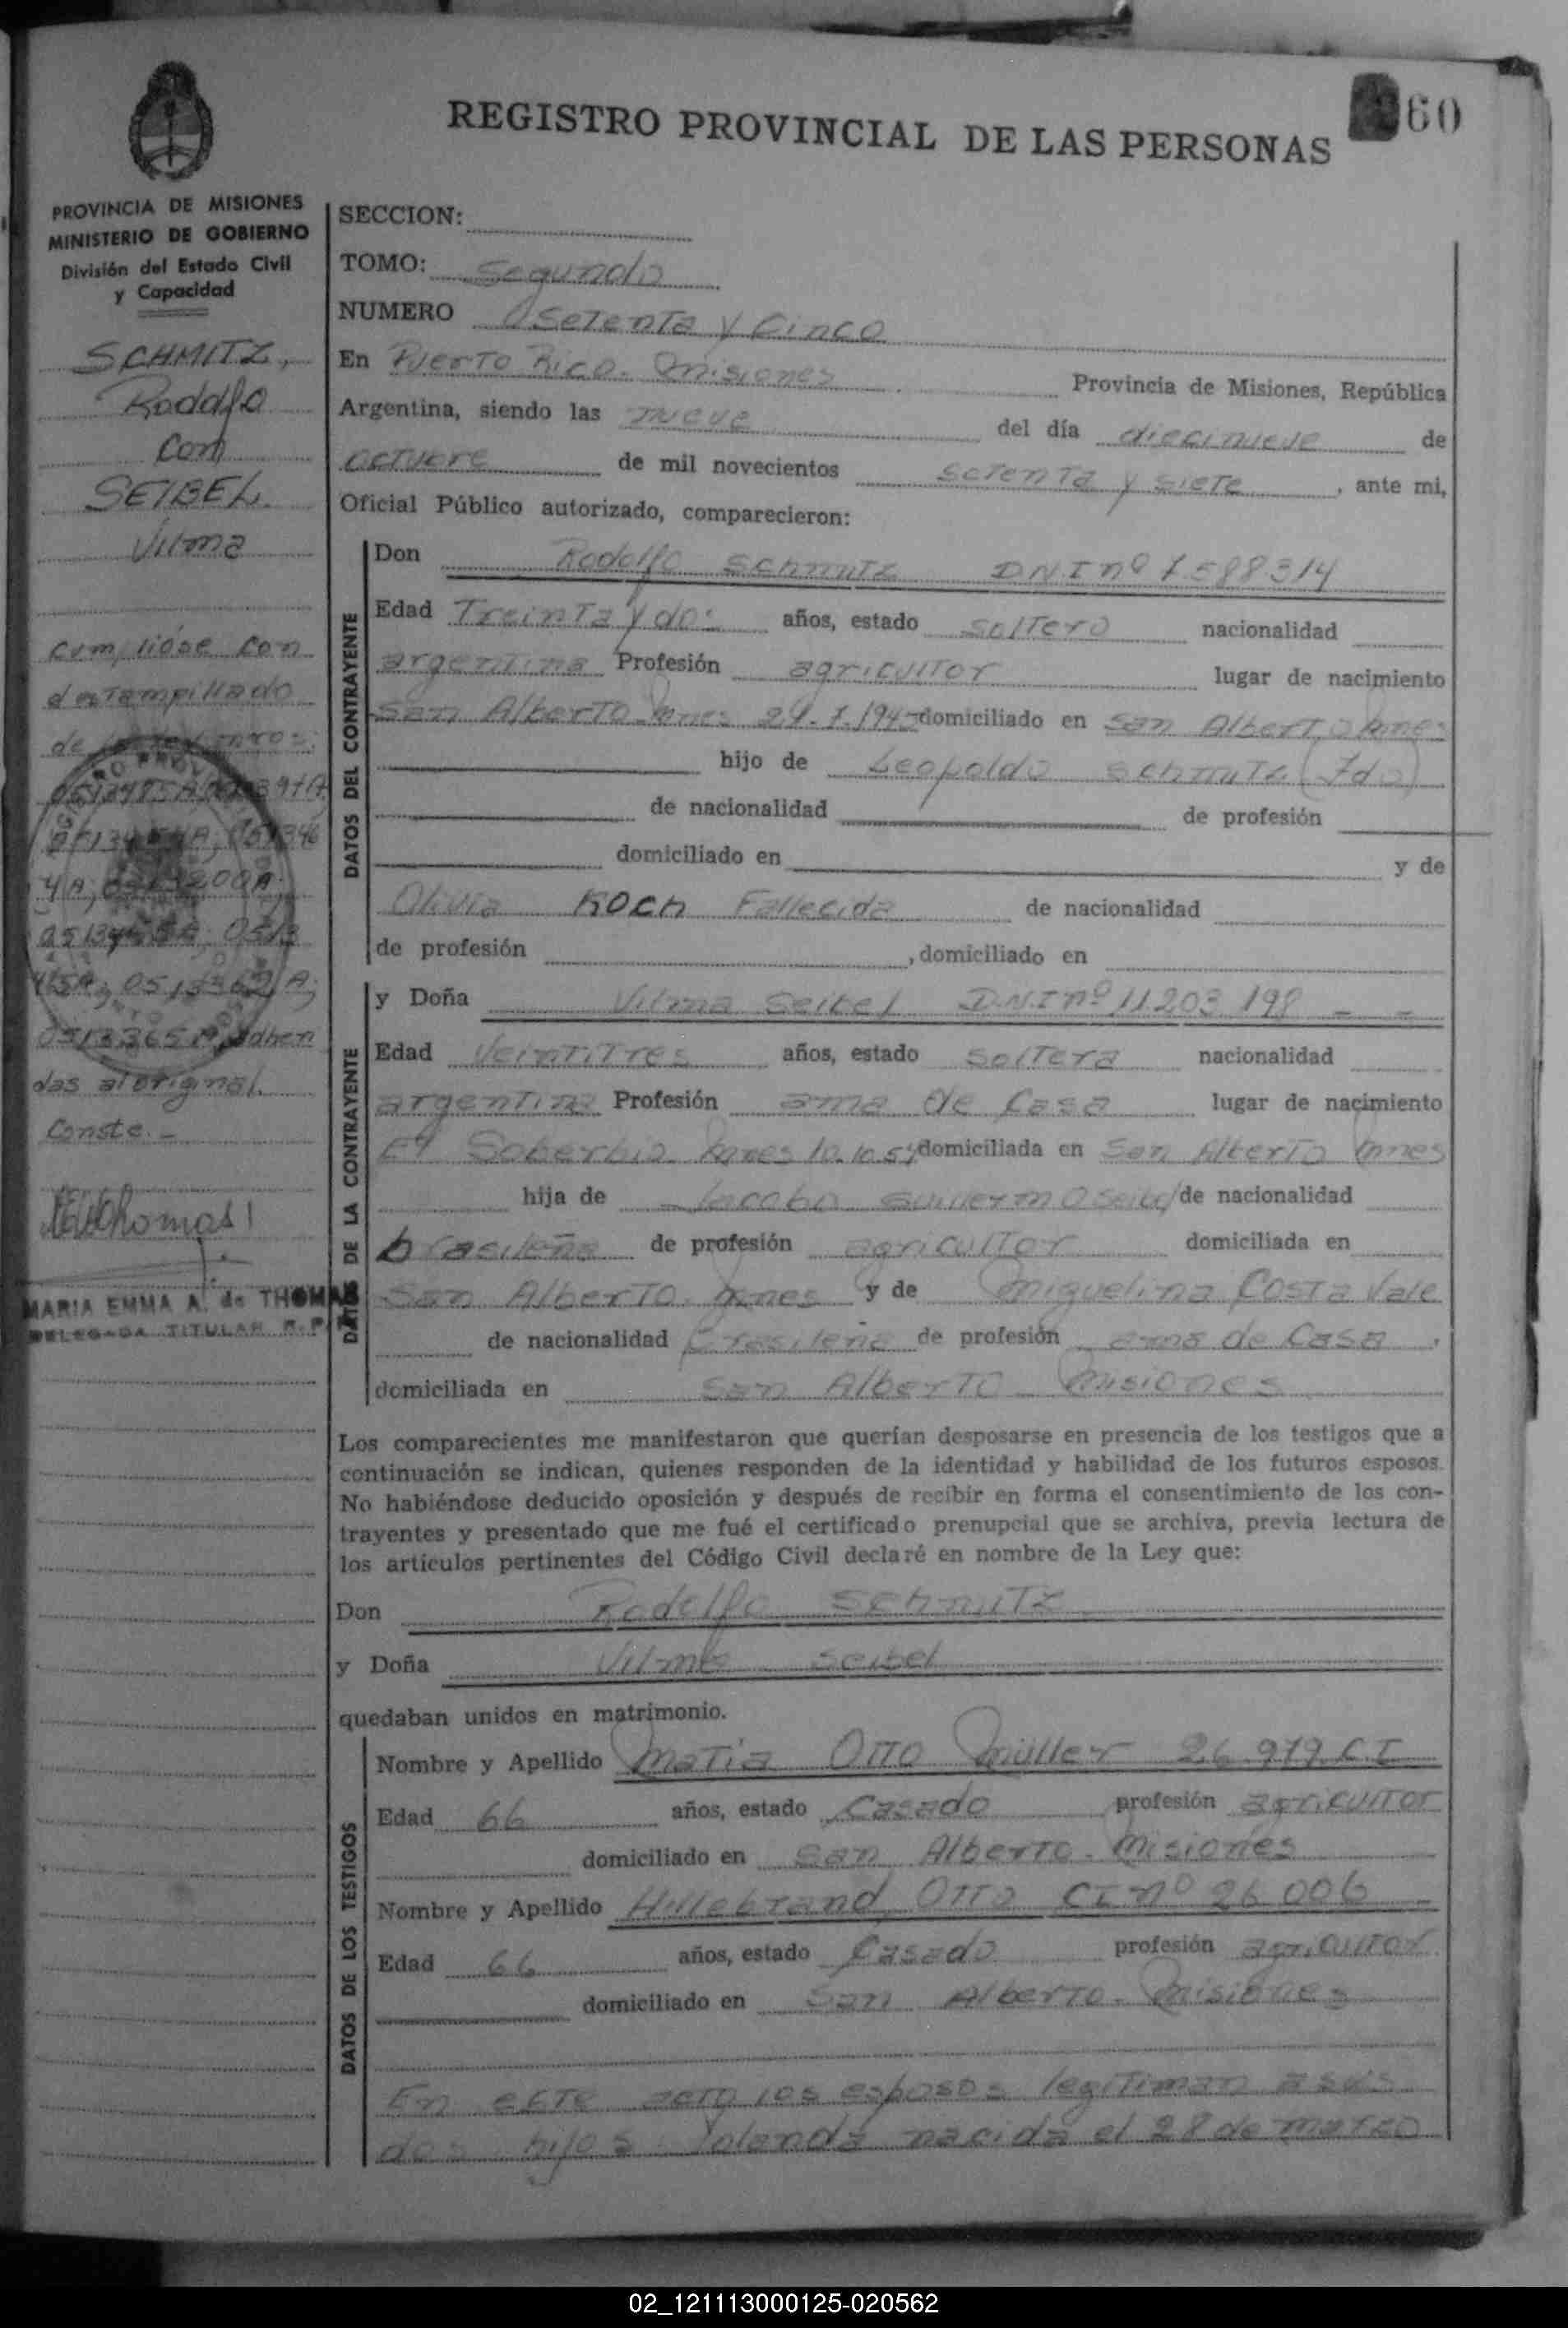 60
REGISTRO PROVINCIAL DE LAS PERSONAS
PROVINCIA DE MISIONES
MINISTERIO DE GOBIERNO
División del Estado Civil
y Capacidad
SCHMITZ,
Rodolfo
con
SEIBEL
Vilma
cumplióse con
estampillado
de
adheri
das al original.
Conste.-
MARIA EMMA A. de THOMAS
DELEGADA TITULAR R.P.
SECCION:
TOMO: Segundo
NUMERO Setenta y Cinco
En Puerto Rico. Misiones Provincia de Misiones, República
Argentina, siendo las nueve del día diecinueve de
octubre de mil novecientos setenta y siete, ante mi,
Oficial Público autorizado, comparecieron:
DATOS DEL CONTRAYENTE
Don Rodolfo Schmitz DNI nº 7588314
Edad Treinta y dos años, estado soltero nacionalidad
argentina Profesión agricultor lugar de nacimiento
San Alberto Mnes 1945 domiciliado en San Alberto Mnes
hijo de Leopoldo Schmitz (fdo)
de nacionalidad de profesión
domiciliado en y de
Olivia Koch Fallecida de nacionalidad
de profesión , domiciliado en
DATOS DE LA CONTRAYENTE
y Doña Vilma Seibel D.N.I nº 11.203.198 - -
Edad Veintitres años, estado soltera nacionalidad
argentina Profesión ama de Casa lugar de nacimiento
El Soberbio Mnes 10.10.54 domiciliada en San Alberto Mnes
hija de Jacobo Guillermo Seibel de nacionalidad
brasileña de profesión agricultor domiciliada en
San Alberto. Mnes y de Miguelina Costa Vale
de nacionalidad brasileña de profesión ama de Casa,
domiciliada en San Alberto Misiones
Los comparecientes me manifestaron que querían desposarse en presencia de los testigos que a
continuación se indican, quienes responden de la identidad y habilidad de los futuros esposos.
No habiéndose deducido oposición y después de recibir en forma el consentimiento de los con-
trayentes y presentado que me fué el certificado prenupcial que se archiva, previa lectura de
los artículos pertinentes del Código Civil declaré en nombre de la Ley que:
Don Rodolfo Schmitz
y Doña Vilma Seibel
quedaban unidos en matrimonio.
DATOS DE LOS TESTIGOS
Nombre y Apellido Matia Otto Müller 26.979 C.I
Edad 66 años, estado Casado profesión agricultor
domiciliado en San Alberto. Misiones
Nombre y Apellido Hillebrand, Otto CI nº 26.006
Edad 66 años, estado Casado profesión agricultor
domiciliado en San Alberto. Misiones
En este acto los esposos legitiman a sus
dos hijos: Yolanda nacida el 28 de marzo
02_121113000125-020562